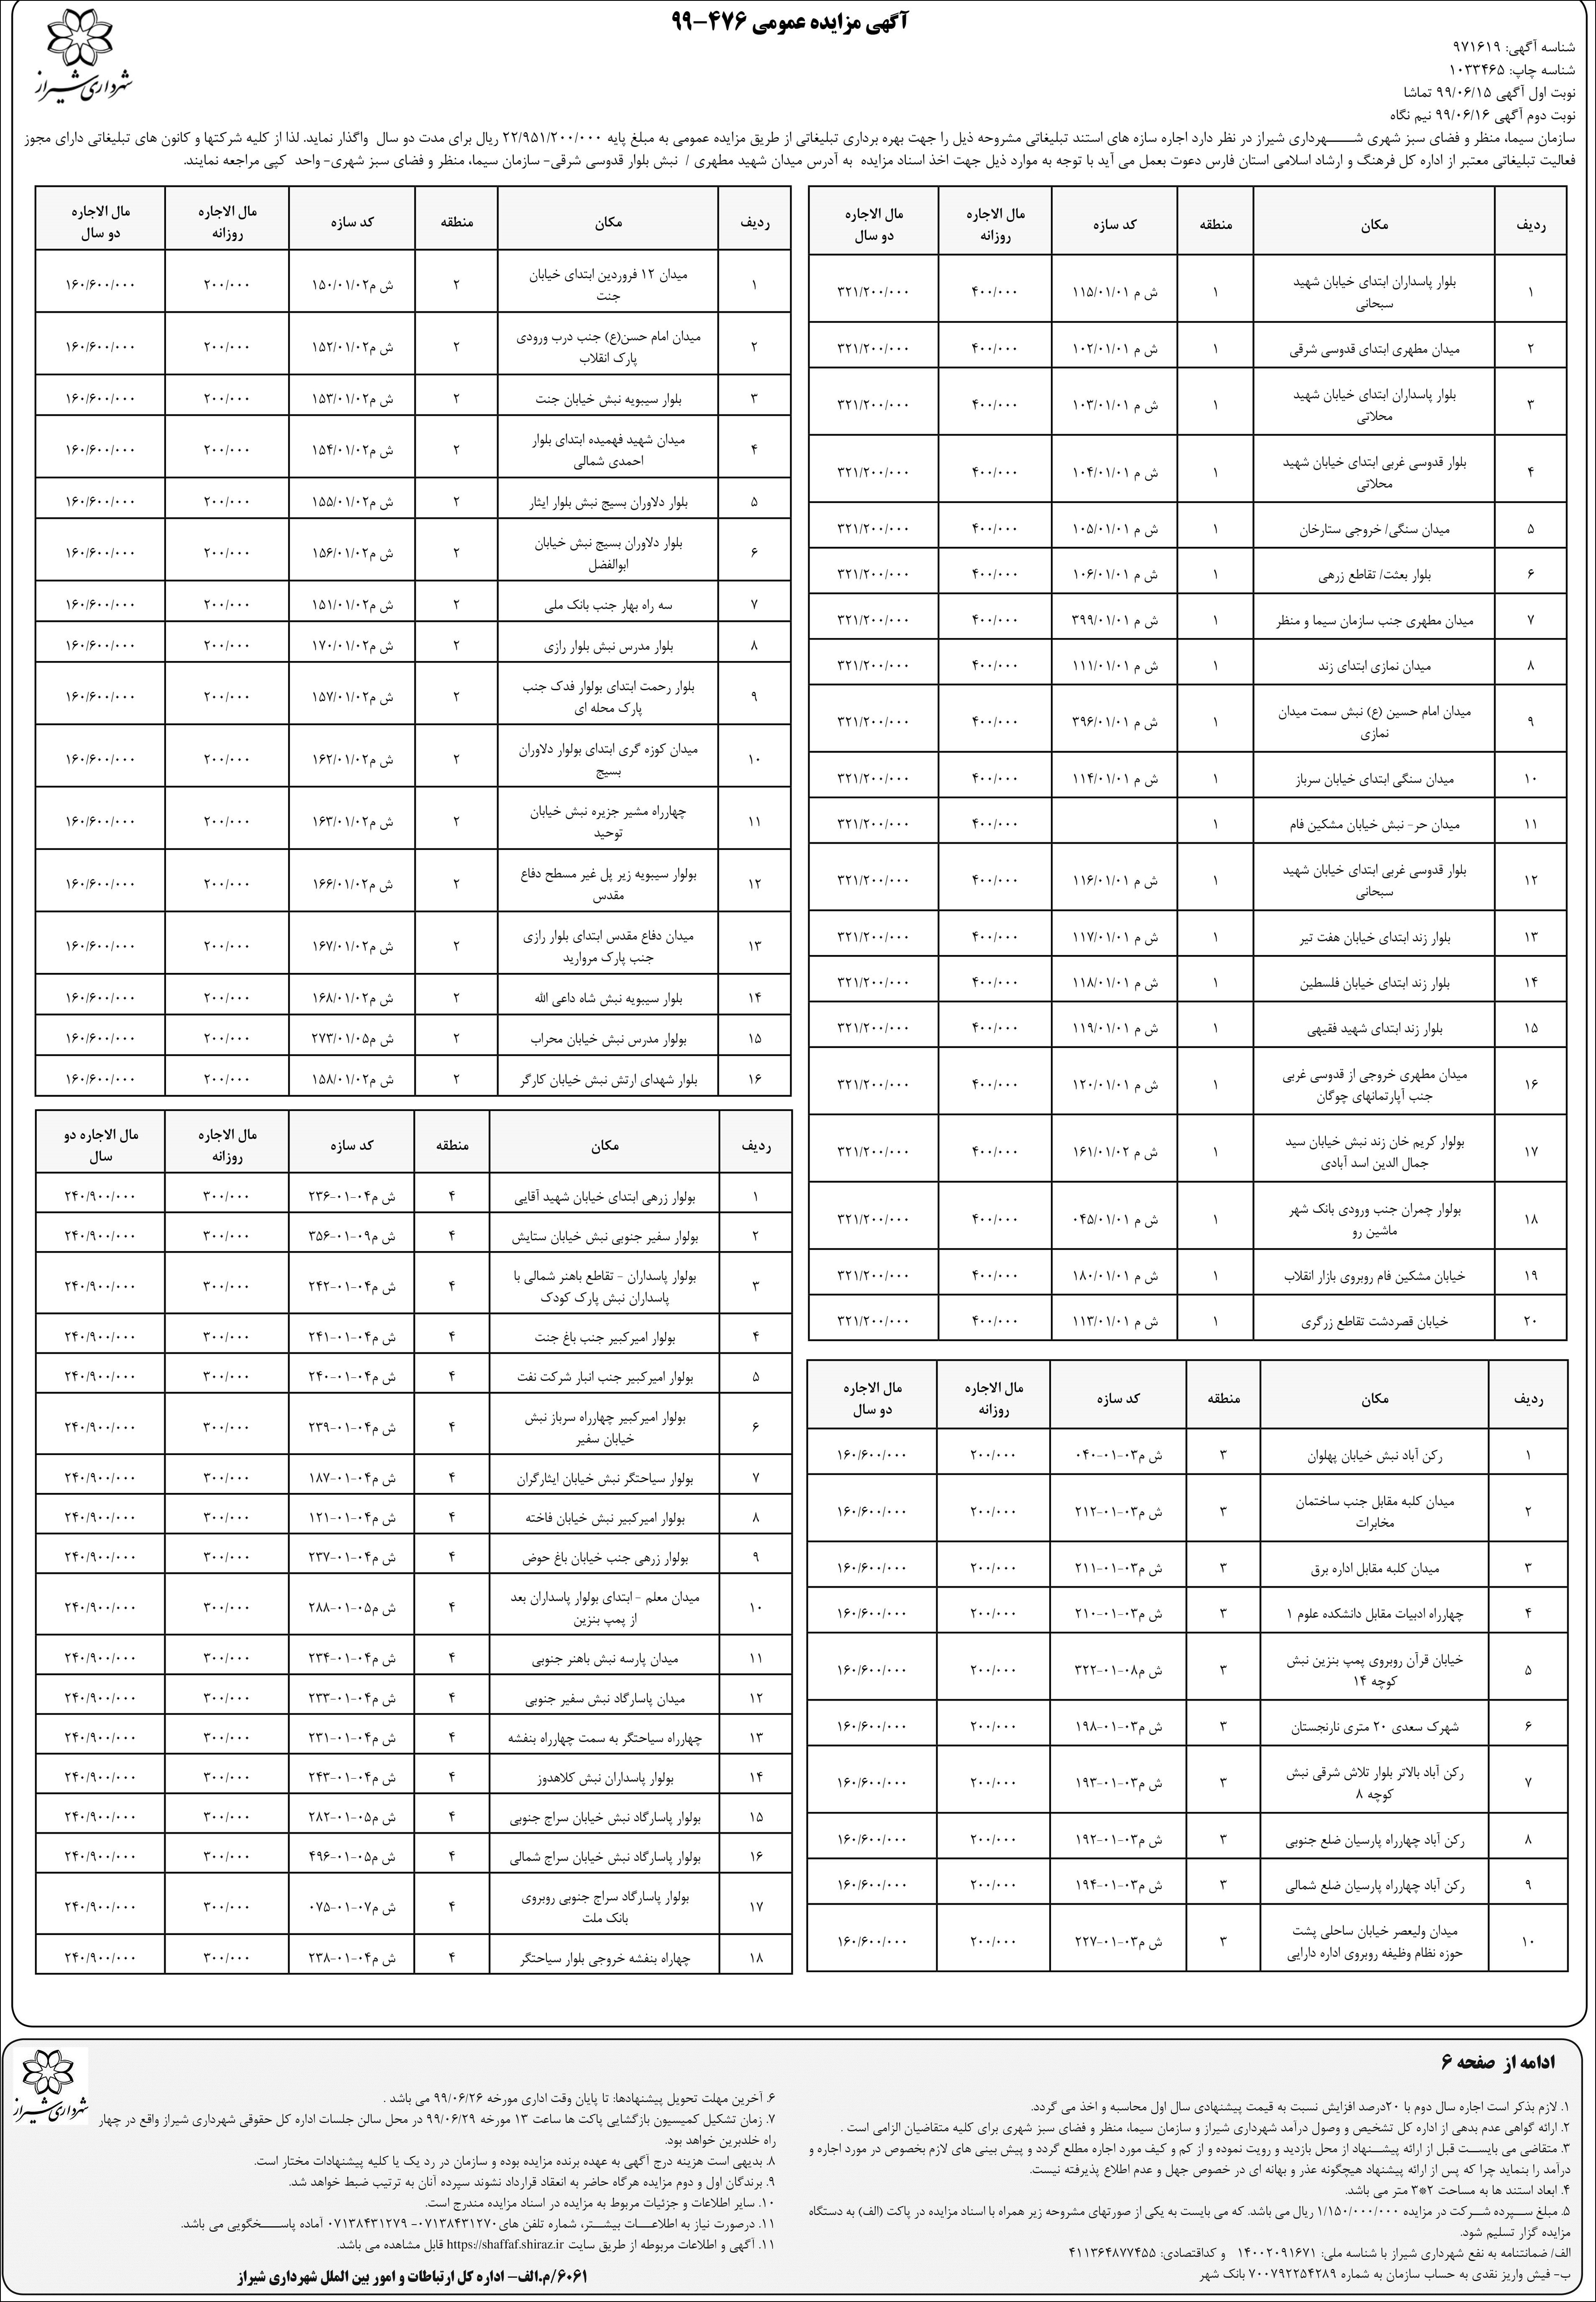 آگهی مزایده عمومی ۴۷۶-۹۹
شهرداری شیراز
شناسه آگهی: ۹۷۱۶۱۹
شناسه چاپ: ۱۰۳۳۴۶۵
نوبت اول آگهی ۹۹/۰۶/۱۵ تماشا
نوبت دوم آگهی ۹۹/۰۶/۱۶ نیم نگاه
سازمان سیما، منظر و فضای سبز شهری شهرداری شیراز در نظر دارد اجاره سازه های استند تبلیغاتی مشروحه ذیل را جهت بهره برداری تبلیغاتی از طریق مزایده عمومی به مبلغ پایه ۲۲/۹۵۱/۲۰۰/۰۰۰ ریال برای مدت دو سال واگذار نماید. لذا از کلیه شرکتها و کانون های تبلیغاتی دارای مجوز
فعالیت تبلیغاتی معتبر از اداره کل فرهنگ و ارشاد اسلامی استان فارس دعوت بعمل می آید با توجه به موارد ذیل جهت اخذ اسناد مزایده به آدرس میدان شهید مطهری / نبش بلوار قدوسی شرقی- سازمان سیما، منظر و فضای سبز شهری- واحد کپی مراجعه نمایند.
ردیف مکان منطقه کد سازه مال الاجاره روزانه مال الاجاره دو سال
۱ بلوار پاسداران ابتدای خیابان شهید سبحانی ۱ ش م ۱۱۵/۰۱/۰۱ ۴۰۰/۰۰۰ ۳۲۱/۲۰۰/۰۰۰
۲ میدان مطهری ابتدای قدوسی شرقی ۱ ش م ۱۰۲/۰۱/۰۱ ۴۰۰/۰۰۰ ۳۲۱/۲۰۰/۰۰۰
۳ بلوار پاسداران ابتدای خیابان شهید محلاتی ۱ ش م ۱۰۳/۰۱/۰۱ ۴۰۰/۰۰۰ ۳۲۱/۲۰۰/۰۰۰
۴ بلوار قدوسی غربی ابتدای خیابان شهید محلاتی ۱ ش م ۱۰۴/۰۱/۰۱ ۴۰۰/۰۰۰ ۳۲۱/۲۰۰/۰۰۰
۵ میدان سنگی/ خروجی ستارخان ۱ ش م ۱۰۵/۰۱/۰۱ ۴۰۰/۰۰۰ ۳۲۱/۲۰۰/۰۰۰
۶ بلوار بعثت/ تقاطع زرهی ۱ ش م ۱۰۶/۰۱/۰۱ ۴۰۰/۰۰۰ ۳۲۱/۲۰۰/۰۰۰
۷ میدان مطهری جنب سازمان سیما و منظر ۱ ش م ۳۹۹/۰۱/۰۱ ۴۰۰/۰۰۰ ۳۲۱/۲۰۰/۰۰۰
۸ میدان نمازی ابتدای زند ۱ ش م ۱۱۱/۰۱/۰۱ ۴۰۰/۰۰۰ ۳۲۱/۲۰۰/۰۰۰
۹ میدان امام حسین (ع) نبش سمت میدان نمازی ۱ ش م ۳۹۶/۰۱/۰۱ ۴۰۰/۰۰۰ ۳۲۱/۲۰۰/۰۰۰
۱۰ میدان سنگی ابتدای خیابان سرباز ۱ ش م ۱۱۴/۰۱/۰۱ ۴۰۰/۰۰۰ ۳۲۱/۲۰۰/۰۰۰
۱۱ میدان حر- نبش خیابان مشکین فام ۱ ۴۰۰/۰۰۰ ۳۲۱/۲۰۰/۰۰۰
۱۲ بلوار قدوسی غربی ابتدای خیابان شهید سبحانی ۱ ش م ۱۱۶/۰۱/۰۱ ۴۰۰/۰۰۰ ۳۲۱/۲۰۰/۰۰۰
۱۳ بلوار زند ابتدای خیابان هفت تیر ۱ ش م ۱۱۷/۰۱/۰۱ ۴۰۰/۰۰۰ ۳۲۱/۲۰۰/۰۰۰
۱۴ بلوار زند ابتدای خیابان فلسطین ۱ ش م ۱۱۸/۰۱/۰۱ ۴۰۰/۰۰۰ ۳۲۱/۲۰۰/۰۰۰
۱۵ بلوار زند ابتدای شهید فقیهی ۱ ش م ۱۱۹/۰۱/۰۱ ۴۰۰/۰۰۰ ۳۲۱/۲۰۰/۰۰۰
۱۶ میدان مطهری خروجی از قدوسی غربی جنب آپارتمانهای چوگان ۱ ش م ۱۲۰/۰۱/۰۱ ۴۰۰/۰۰۰ ۳۲۱/۲۰۰/۰۰۰
۱۷ بولوار کریم خان زند نبش خیابان سید جمال الدین اسد آبادی ۱ ش م ۱۶۱/۰۱/۰۲ ۴۰۰/۰۰۰ ۳۲۱/۲۰۰/۰۰۰
۱۸ بولوار چمران جنب ورودی بانک شهر ماشین رو ۱ ش م ۰۴۵/۰۱/۰۱ ۴۰۰/۰۰۰ ۳۲۱/۲۰۰/۰۰۰
۱۹ خیابان مشکین فام روبروی بازار انقلاب ۱ ش م ۱۸۰/۰۱/۰۱ ۴۰۰/۰۰۰ ۳۲۱/۲۰۰/۰۰۰
۲۰ خیابان قصردشت تقاطع زرگری ۱ ش م ۱۱۳/۰۱/۰۱ ۴۰۰/۰۰۰ ۳۲۱/۲۰۰/۰۰۰
ردیف مکان منطقه کد سازه مال الاجاره روزانه مال الاجاره دو سال
۱ رکن آباد نبش خیابان پهلوان ۳ ش م۰۳-۰۱-۰۴۰ ۲۰۰/۰۰۰ ۱۶۰/۶۰۰/۰۰۰
۲ میدان کلبه مقابل جنب ساختمان مخابرات ۳ ش م۰۳-۰۱-۲۱۲ ۲۰۰/۰۰۰ ۱۶۰/۶۰۰/۰۰۰
۳ میدان کلبه مقابل اداره برق ۳ ش م۰۳-۰۱-۲۱۱ ۲۰۰/۰۰۰ ۱۶۰/۶۰۰/۰۰۰
۴ چهارراه ادبیات مقابل دانشکده علوم ۱ ۳ ش م۰۳-۰۱-۲۱۰ ۲۰۰/۰۰۰ ۱۶۰/۶۰۰/۰۰۰
۵ خیابان قرآن روبروی پمپ بنزین نبش کوچه ۱۴ ۳ ش م۰۸-۰۱-۳۲۲ ۲۰۰/۰۰۰ ۱۶۰/۶۰۰/۰۰۰
۶ شهرک سعدی ۲۰ متری نارنجستان ۳ ش م۰۳-۰۱-۱۹۸ ۲۰۰/۰۰۰ ۱۶۰/۶۰۰/۰۰۰
۷ رکن آباد بالاتر بلوار تلاش شرقی نبش کوچه ۸ ۳ ش م۰۳-۰۱-۱۹۳ ۲۰۰/۰۰۰ ۱۶۰/۶۰۰/۰۰۰
۸ رکن آباد چهارراه پارسیان ضلع جنوبی ۳ ش م۰۳-۰۱-۱۹۲ ۲۰۰/۰۰۰ ۱۶۰/۶۰۰/۰۰۰
۹ رکن آباد چهارراه پارسیان ضلع شمالی ۳ ش م۰۳-۰۱-۱۹۴ ۲۰۰/۰۰۰ ۱۶۰/۶۰۰/۰۰۰
۱۰ میدان ولیعصر خیابان ساحلی پشت حوزه نظام وظیفه روبروی اداره دارایی ۳ ش م۰۳-۰۱-۲۲۷ ۲۰۰/۰۰۰ ۱۶۰/۶۰۰/۰۰۰
ردیف مکان منطقه کد سازه مال الاجاره روزانه مال الاجاره دو سال
۱ میدان ۱۲ فروردین ابتدای خیابان جنت ۲ ش م۱۵۰/۰۱/۰۲ ۲۰۰/۰۰۰ ۱۶۰/۶۰۰/۰۰۰
۲ میدان امام حسن(ع) جنب درب ورودی پارک انقلاب ۲ ش م۱۵۲/۰۱/۰۲ ۲۰۰/۰۰۰ ۱۶۰/۶۰۰/۰۰۰
۳ بلوار سیبویه نبش خیابان جنت ۲ ش م۱۵۳/۰۱/۰۲ ۲۰۰/۰۰۰ ۱۶۰/۶۰۰/۰۰۰
۴ میدان شهید فهمیده ابتدای بلوار احمدی شمالی ۲ ش م۱۵۴/۰۱/۰۲ ۲۰۰/۰۰۰ ۱۶۰/۶۰۰/۰۰۰
۵ بلوار دلاوران بسیج نبش بلوار ایثار ۲ ش م۱۵۵/۰۱/۰۲ ۲۰۰/۰۰۰ ۱۶۰/۶۰۰/۰۰۰
۶ بلوار دلاوران بسیج نبش خیابان ابوالفضل ۲ ش م۱۵۶/۰۱/۰۲ ۲۰۰/۰۰۰ ۱۶۰/۶۰۰/۰۰۰
۷ سه راه بهار جنب بانک ملی ۲ ش م۱۵۱/۰۱/۰۲ ۲۰۰/۰۰۰ ۱۶۰/۶۰۰/۰۰۰
۸ بلوار مدرس نبش بلوار رازی ۲ ش م۱۷۰/۰۱/۰۲ ۲۰۰/۰۰۰ ۱۶۰/۶۰۰/۰۰۰
۹ بلوار رحمت ابتدای بولوار فدک جنب پارک محله ای ۲ ش م۱۵۷/۰۱/۰۲ ۲۰۰/۰۰۰ ۱۶۰/۶۰۰/۰۰۰
۱۰ میدان کوزه گری ابتدای بولوار دلاوران بسیج ۲ ش م۱۶۲/۰۱/۰۲ ۲۰۰/۰۰۰ ۱۶۰/۶۰۰/۰۰۰
۱۱ چهارراه مشیر جزیره نبش خیابان توحید ۲ ش م۱۶۳/۰۱/۰۲ ۲۰۰/۰۰۰ ۱۶۰/۶۰۰/۰۰۰
۱۲ بولوار سیبویه زیر پل غیر مسطح دفاع مقدس ۲ ش م۱۶۶/۰۱/۰۲ ۲۰۰/۰۰۰ ۱۶۰/۶۰۰/۰۰۰
۱۳ میدان دفاع مقدس ابتدای بلوار رازی جنب پارک مروارید ۲ ش م۱۶۷/۰۱/۰۲ ۲۰۰/۰۰۰ ۱۶۰/۶۰۰/۰۰۰
۱۴ بلوار سیبویه نبش شاه داعی الله ۲ ش م۱۶۸/۰۱/۰۲ ۲۰۰/۰۰۰ ۱۶۰/۶۰۰/۰۰۰
۱۵ بولوار مدرس نبش خیابان محراب ۲ ش م۲۷۳/۰۱/۰۵ ۲۰۰/۰۰۰ ۱۶۰/۶۰۰/۰۰۰
۱۶ بلوار شهدای ارتش نبش خیابان کارگر ۲ ش م۱۵۸/۰۱/۰۲ ۲۰۰/۰۰۰ ۱۶۰/۶۰۰/۰۰۰
ردیف مکان منطقه کد سازه مال الاجاره روزانه مال الاجاره دو سال
۱ بولوار زرهی ابتدای خیابان شهید آقایی ۴ ش م۰۴-۰۱-۲۳۶ ۳۰۰/۰۰۰ ۲۴۰/۹۰۰/۰۰۰
۲ بولوار سفیر جنوبی نبش خیابان ستایش ۴ ش م۰۹-۰۱-۳۵۶ ۳۰۰/۰۰۰ ۲۴۰/۹۰۰/۰۰۰
۳ بولوار پاسداران - تقاطع باهنر شمالی با پاسداران نبش پارک کودک ۴ ش م۰۴-۰۱-۲۴۲ ۳۰۰/۰۰۰ ۲۴۰/۹۰۰/۰۰۰
۴ بولوار امیرکبیر جنب باغ جنت ۴ ش م۰۴-۰۱-۲۴۱ ۳۰۰/۰۰۰ ۲۴۰/۹۰۰/۰۰۰
۵ بولوار امیرکبیر جنب انبار شرکت نفت ۴ ش م۰۴-۰۱-۲۴۰ ۳۰۰/۰۰۰ ۲۴۰/۹۰۰/۰۰۰
۶ بولوار امیرکبیر چهارراه سرباز نبش خیابان سفیر ۴ ش م۰۴-۰۱-۲۳۹ ۳۰۰/۰۰۰ ۲۴۰/۹۰۰/۰۰۰
۷ بولوار سیاحتگر نبش خیابان ایثارگران ۴ ش م۰۴-۰۱-۱۸۷ ۳۰۰/۰۰۰ ۲۴۰/۹۰۰/۰۰۰
۸ بولوار امیرکبیر نبش خیابان فاخته ۴ ش م۰۴-۰۱-۱۲۱ ۳۰۰/۰۰۰ ۲۴۰/۹۰۰/۰۰۰
۹ بولوار زرهی جنب خیابان باغ حوض ۴ ش م۰۴-۰۱-۲۳۷ ۳۰۰/۰۰۰ ۲۴۰/۹۰۰/۰۰۰
۱۰ میدان معلم - ابتدای بولوار پاسداران بعد از پمپ بنزین ۴ ش م۰۵-۰۱-۲۸۸ ۳۰۰/۰۰۰ ۲۴۰/۹۰۰/۰۰۰
۱۱ میدان پارسه نبش باهنر جنوبی ۴ ش م۰۴-۰۱-۲۳۴ ۳۰۰/۰۰۰ ۲۴۰/۹۰۰/۰۰۰
۱۲ میدان پاسارگاد نبش سفیر جنوبی ۴ ش م۰۴-۰۱-۲۳۳ ۳۰۰/۰۰۰ ۲۴۰/۹۰۰/۰۰۰
۱۳ چهارراه سیاحتگر به سمت چهارراه بنفشه ۴ ش م۰۴-۰۱-۲۳۱ ۳۰۰/۰۰۰ ۲۴۰/۹۰۰/۰۰۰
۱۴ بولوار پاسداران نبش کلاهدوز ۴ ش م۰۴-۰۱-۲۴۳ ۳۰۰/۰۰۰ ۲۴۰/۹۰۰/۰۰۰
۱۵ بولوار پاسارگاد نبش خیابان سراج جنوبی ۴ ش م۰۵-۰۱-۲۸۲ ۳۰۰/۰۰۰ ۲۴۰/۹۰۰/۰۰۰
۱۶ بولوار پاسارگاد نبش خیابان سراج شمالی ۴ ش م۰۵-۰۱-۴۹۶ ۳۰۰/۰۰۰ ۲۴۰/۹۰۰/۰۰۰
۱۷ بولوار پاسارگاد سراج جنوبی روبروی بانک ملت ۴ ش م۰۷-۰۱-۰۷۵ ۳۰۰/۰۰۰ ۲۴۰/۹۰۰/۰۰۰
۱۸ چهاراه بنفشه خروجی بلوار سیاحتگر ۴ ش م۰۴-۰۱-۲۳۸ ۳۰۰/۰۰۰ ۲۴۰/۹۰۰/۰۰۰
ادامه از صفحه ۶
۱. لازم بذکر است اجاره سال دوم با ۲۰درصد افزایش نسبت به قیمت پیشنهادی سال اول محاسبه و اخذ می گردد.
۲. ارائه گواهی عدم بدهی از اداره کل تشخیص و وصول درآمد شهرداری شیراز و سازمان سیما، منظر و فضای سبز شهری برای کلیه متقاضیان الزامی است .
۳. متقاضی می بایست قبل از ارائه پیشنهاد از محل بازدید و رویت نموده و از کم و کیف مورد اجاره مطلع گردد و پیش بینی های لازم بخصوص در مورد اجاره و
درآمد را بنماید چرا که پس از ارائه پیشنهاد هیچگونه عذر و بهانه ای در خصوص جهل و عدم اطلاع پذیرفته نیست.
۴. ابعاد استند ها به مساحت ۲*۳ متر می باشد.
۵. مبلغ سپرده شرکت در مزایده ۱/۱۵۰/۰۰۰/۰۰۰ ریال می باشد. که می بایست به یکی از صورتهای مشروحه زیر همراه با اسناد مزایده در پاکت (الف) به دستگاه
مزایده گزار تسلیم شود.
الف/ ضمانتنامه به نفع شهرداری شیراز با شناسه ملی: ۱۴۰۰۲۰۹۱۶۷۱ و کداقتصادی: ۴۱۱۳۶۴۸۷۷۴۵۵
ب- فیش واریز نقدی به حساب سازمان به شماره ۷۰۰۷۹۲۲۵۴۲۸۹ بانک شهر
شهرداری شیراز
۶. آخرین مهلت تحویل پیشنهادها: تا پایان وقت اداری مورخه ۹۹/۰۶/۲۶ می باشد .
۷. زمان تشکیل کمیسیون بازگشایی پاکت ها ساعت ۱۳ مورخه ۹۹/۰۶/۲۹ در محل سالن جلسات اداره کل حقوقی شهرداری شیراز واقع در چهار
راه خلدبرین خواهد بود.
۸. بدیهی است هزینه درج آگهی به عهده برنده مزایده بوده و سازمان در رد یک یا کلیه پیشنهادات مختار است.
۹. برندگان اول و دوم مزایده هرگاه حاضر به انعقاد قرارداد نشوند سپرده آنان به ترتیب ضبط خواهد شد.
۱۰. سایر اطلاعات و جزئیات مربوط به مزایده در اسناد مزایده مندرج است.
۱۱. درصورت نیاز به اطلاعات بیشتر، شماره تلفن های ۰۷۱۳۸۴۳۱۲۷۰- ۰۷۱۳۸۴۳۱۲۷۹ آماده پاسخگویی می باشد.
۱۱. آگهی و اطلاعات مربوطه از طریق سایت https://shaffaf.shiraz.ir قابل مشاهده می باشد.
۶۰۶۱/م.الف- اداره کل ارتباطات و امور بین الملل شهرداری شیراز